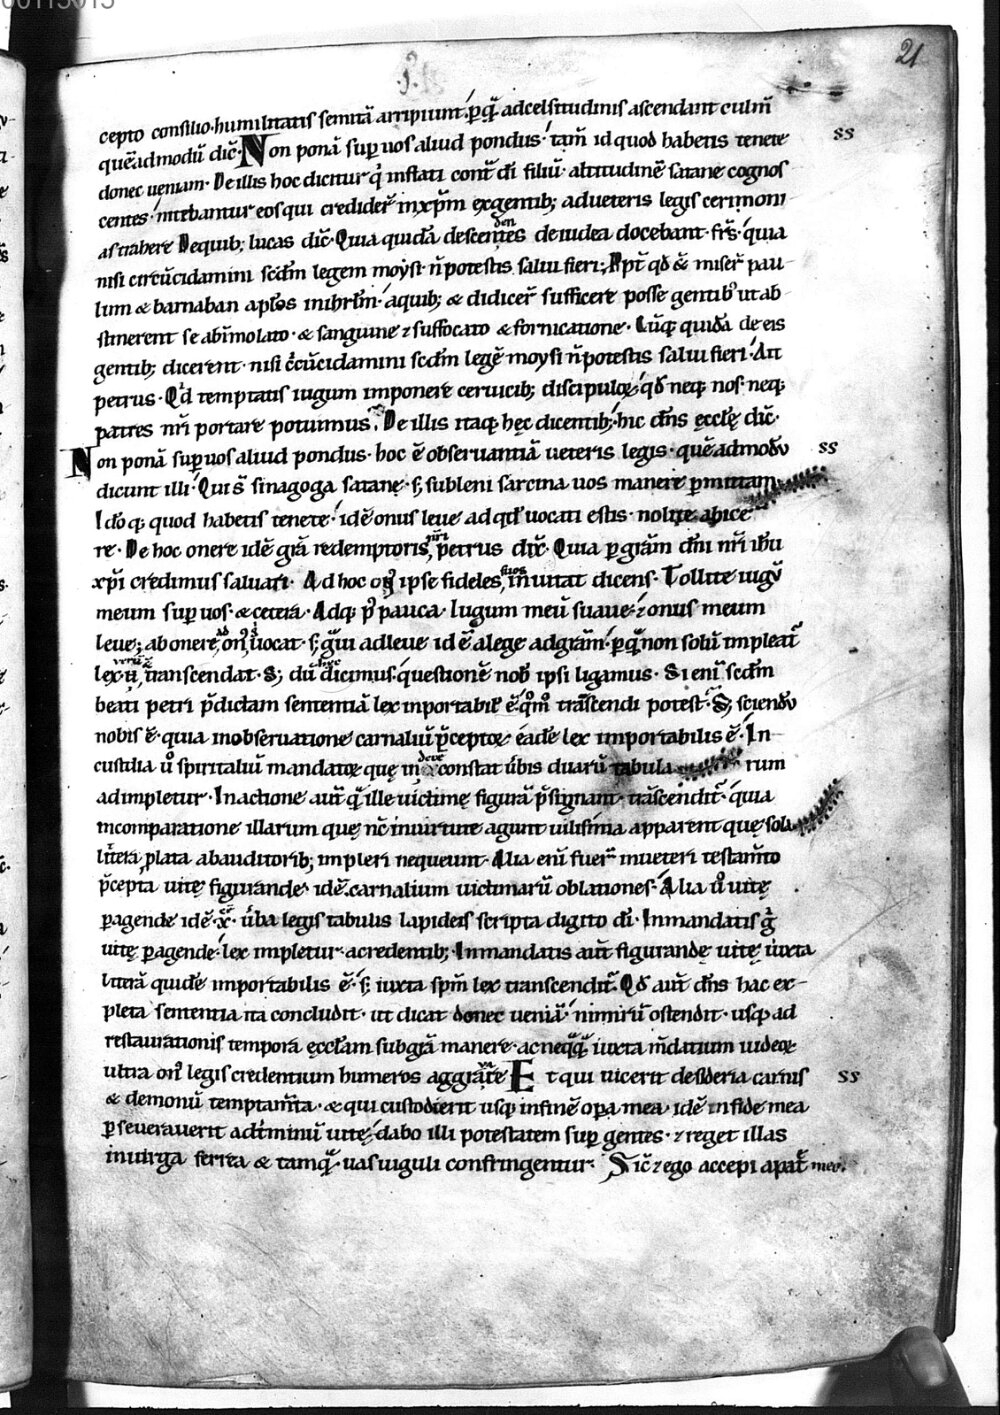 00113013
21
cepto consilio. humilitatis semitā arripiunt. ꝑ quā ad celsitudinis ascendant culm̄
quēadmodū dic̄. Non ponā suꝑ uos aliud pondus. tam̄ id quod habetis tenete ss
donec ueniam. De illis hoc dicitur q̇ inflati cont̄ dī filiū. altitudinē satane cognos
centes. nitebantur eos qui credider̄ in xp̄m ex gentib; ad ueteris legis cerimoni
as trahere. De quib; lucas dic̄. Quia quidā descendentes de iudea docebant fr̄s. quia
nisi circūcidamini scd̄m legem moysi n̄ potestis salui fieri. Apt̄ qđ ē miser̄ pau-
lum & barnaban apl̄os in ihrl̄m. a quib; & didicer̄ sufficere posse gentib; ut ab
stinerent se ab īmolato. & sanguine ⁊ suffocato & fornicatione. Cūq; quidā de eis
gentib; dicerent. nisi c̄cūcidamini scd̄m legē moysi n̄ potestis salui fieri. Ait
petrus. Qd̄ temptatis iugum imponere ceruicib; discipuloꝝ. qđ neq; nos. neq;
patres nr̄i portare potuimus. De illis itaq; hęc dicentib; hic dn̄s ęcclę dic̄.
Non ponā suꝑ uos aliud pondus. hoc ē obseruantiā ueteris legis. quēadmodū ss
dicunt illi. Qui s̄ sinagoga satanę. s; sub leni sarcina uos manere ꝑmittam.
Idōq; quod habetis tenete. idē onus leue ad qđ uocati estis. nolite abice
re. De hoc onere idē grā redemptoris nr̄i, petrus dic̄. Quia ꝑ grām dn̄i nr̄i ihū
xp̄i credimus saluari. Ad hoc on; ipse fideles suos inuitat dicens. Tollite iugū
meum suꝑ uos. & cetera. Adq; p; pauca. Iugum meū suaue. ⁊ onus meum
leue; ab onere ad on; uocat. s; g̊ui ad leue id ē a lege ad grām. ꝑ quā non solū impleat̄
lex uerū & transcendat. S; dū hęc dicimus. questionē nob̄ ipsi ligamus. Si enī scd̄m
beati petri p̄dictam sententiā lex inportabil̄ ē. qm̊ trāscendi potest. S; sciendū
nobis ē. quia in obseruatione carnaliū p̄ceptoꝝ eadē lex importabilis ē. In
custidia ū spiritaliū mandatoꝝ quę in deū constat ūbis duarū tabula rum
adimpletur. In actione aut̄ q̄ ille uictimę figurā p̄signant. trāscendit̄. quia
in comparatione illarum quę nc̄ in uirtute agunt uilisima apparent quę sola
litt̄era plata ab auditorib; impleri nequeunt. Alia enī fuer̄ in ueteri testam̄to
p̄cepta uitę figurande. idē. carnalium uictimarū oblationes. Alia ū uitę
ꝑagende idē .x. ūba legis tabulis lapideis scripta digito dī. In mandatis g̊
uitę ꝑagende. lex impletur. a credentib; In mandatis aut̄ figurandę uitę iuxta
litt̄erā quidē importabilis ē. s; iuxta spm̄ lex transcendit̄. Qđ aut̄ dn̄s hac ex-
pleta sententia ita concludit. ut dicat donec ueniā. nimirū ostendit. usq; ad
restaurationis tempora ęccl̄am sub grā manere. ac neq̄q̄ iuxta m̄datium uideoꝝ
ultra on; legis credentium humeros aggrauare. Et qui uicerit desideria carnis ss
& demonū temptam̄ta. & qui custodierit usq; in finē opera mea. idē in fide mea
ꝑseuerauerit ad t̄minū uitę, dabo illi potestatem suꝑ gentes. ⁊ reget illas
in uirga ferrea & tamq̄. uas uiguli confringentur. Sic̄ ⁊ ego accepi a pat̄ meo.